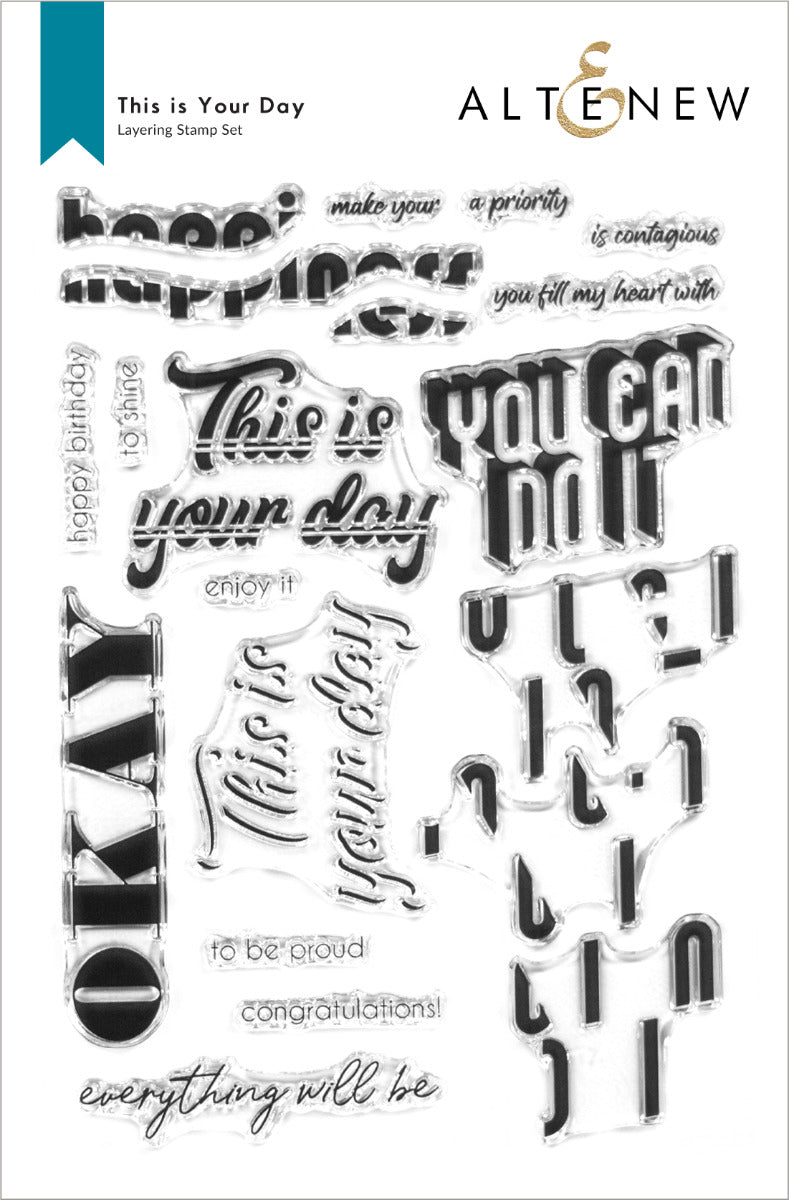 This is Your Day
Layering Stamp Set
ALTENEW
happi
make your
a priority
is contagious
happiness
you fill my heart with
happy birthday
to shine
This is
your day
YOU CAN
DO IT
enjoy it
OKAY
This is
your day
to be proud
congratulations!
everything will be